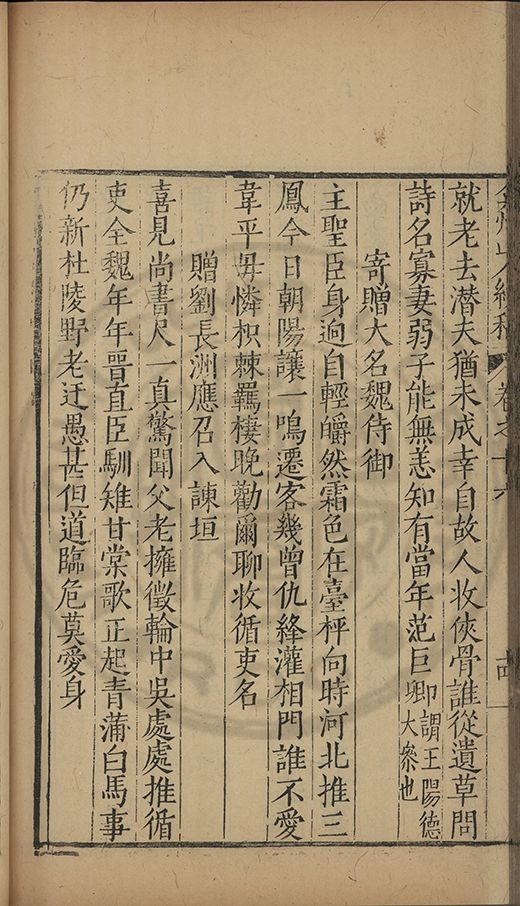 就老去潜夫猶未成幸自故人收俠骨誰從遺草問
詩名寡妻弱子能無恙知有當年范巨卿謂王陽德大參也
寄贈大名魏侍御
主聖臣身逈自輕皭然霜色在臺枰向時河北推三
鳳今日朝陽讓一鳴遷客幾曾仇絳灌相門誰不愛
韋平毋憐枳棘羈棲晚勸爾聊收循吏名
贈劉長洲應召入諫垣
喜見尚書尺一真驚聞父老擁徵輪中吳處處推循
吏全魏年年晉直臣馴雉甘棠歌正起青蒲白馬事
仍新杜陵野老迂愚甚但道臨危莫愛身